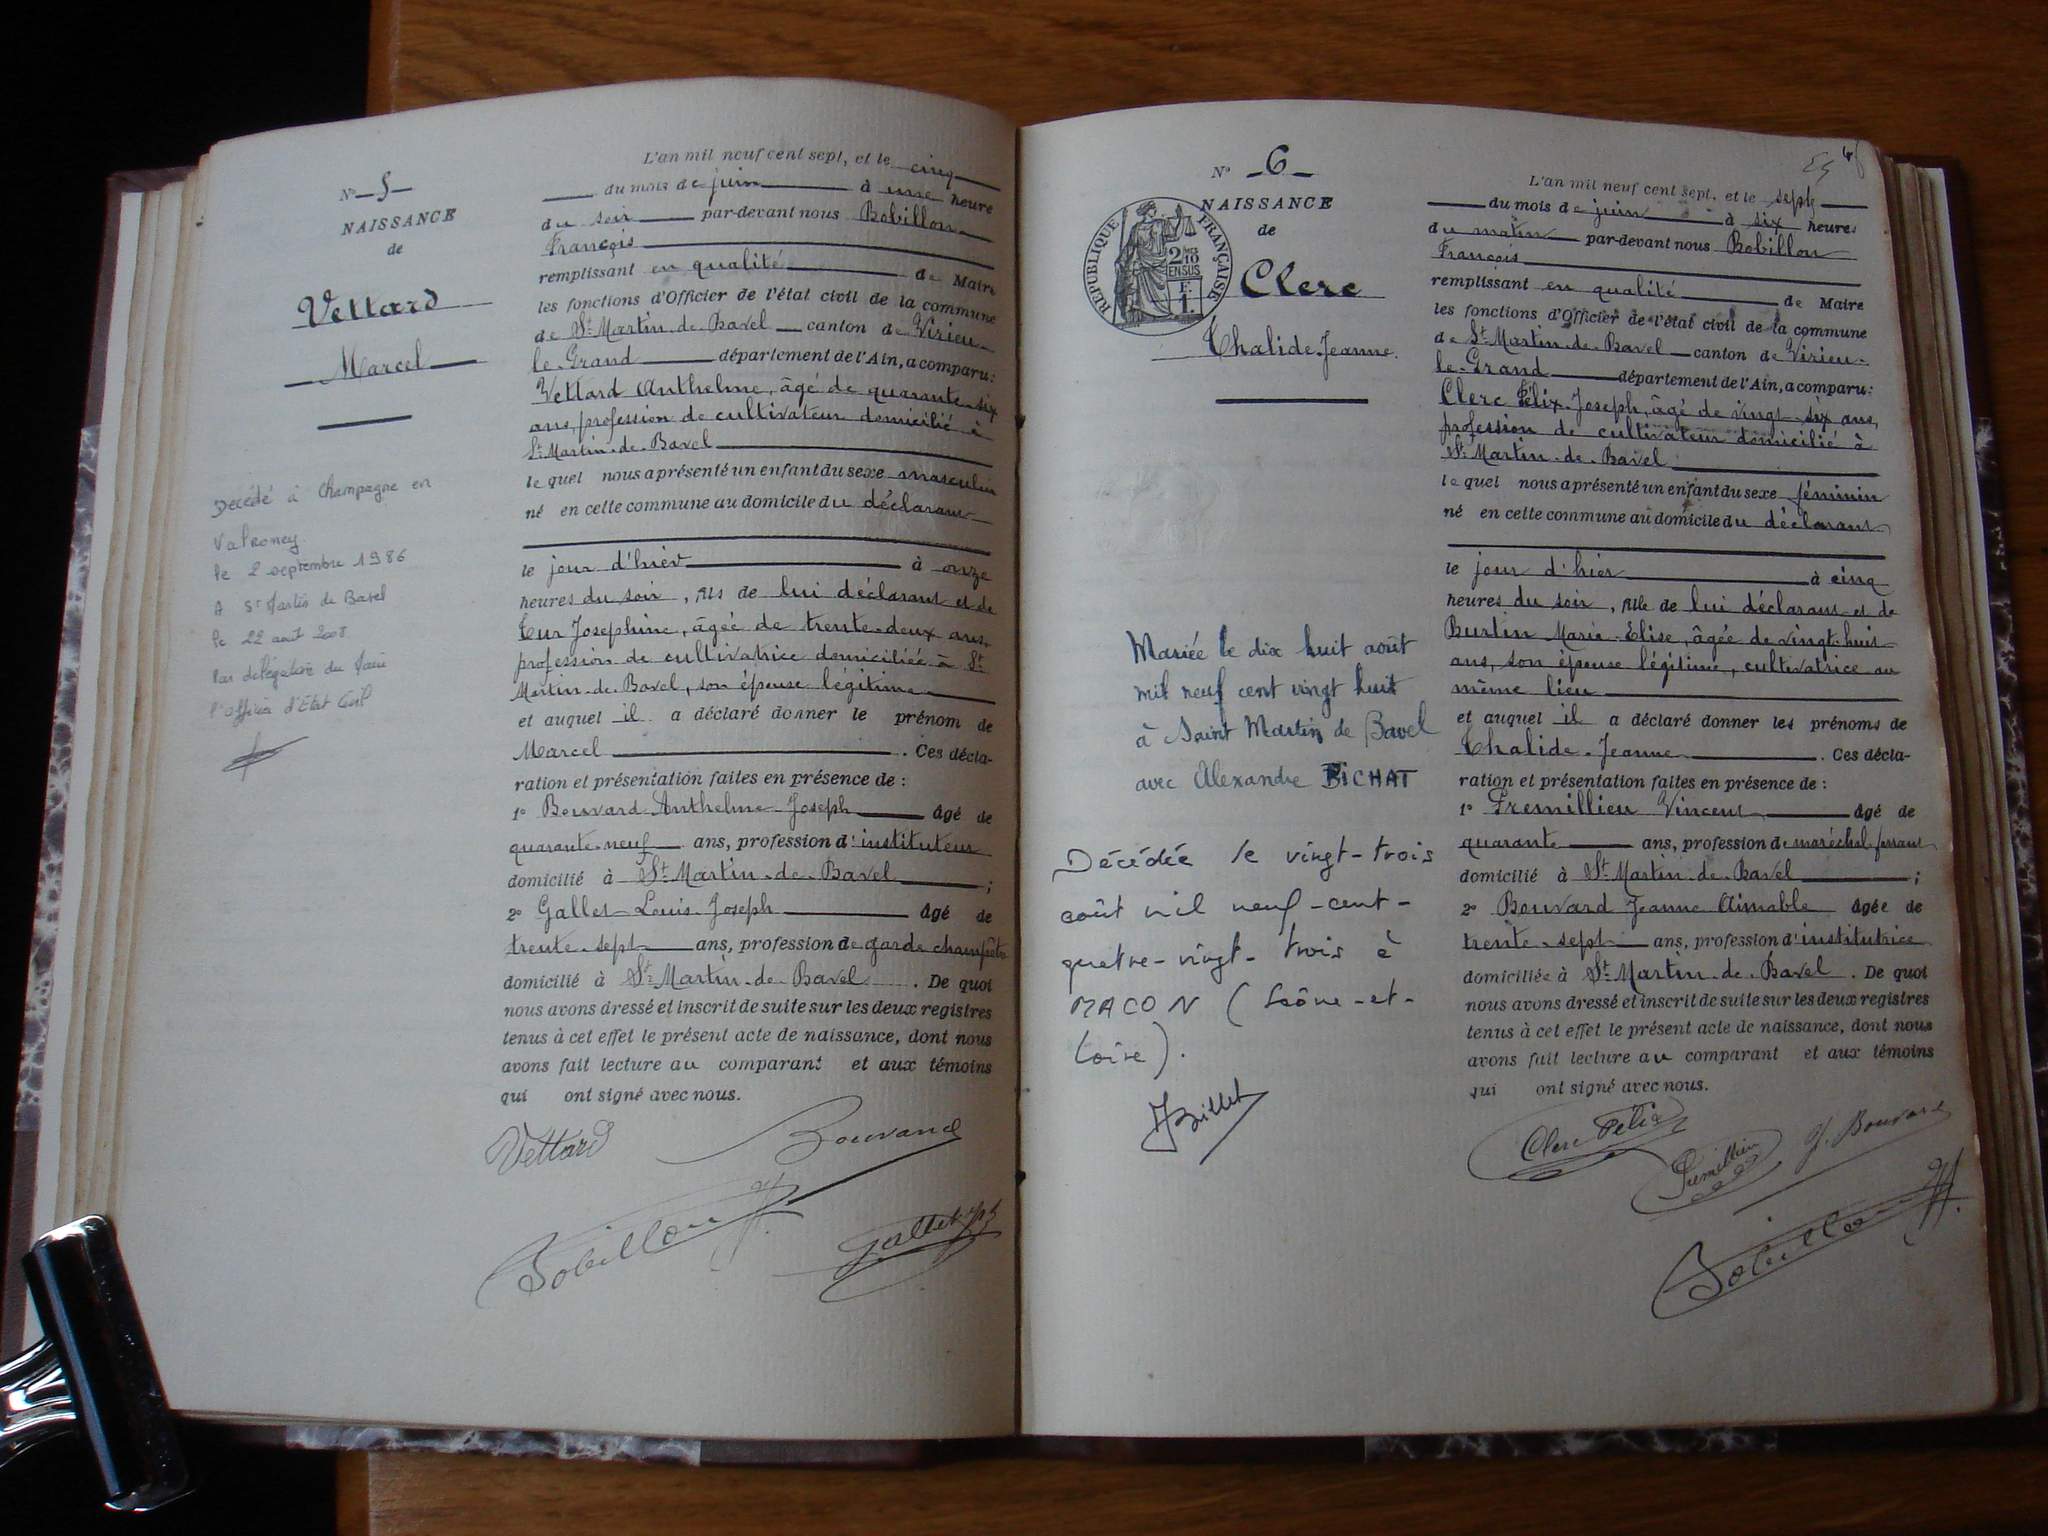 N° 5
NAISSANCE
de
Vettard
Marcel
Décédé à Champagne en
Valromey
le 2 septembre 1986
A St Martin de Bavel
le 22 août 2008
Par délégation du Maire
l'officier d'Etat Civil
L'an mil neuf cent sept, et le cinq
du mois de juin à une heure
du soir par-devant nous Bobillon
François
remplissant en qualité de Maire
les fonctions d'Officier de l'état civil de la commune
de St Martin-de-Bavel canton de Virieu-
le-Grand département de l'Ain, a comparu:
Vettard Anthelme, âgé de quarante-six
ans, profession de cultivateur domicilié à
St Martin-de-Bavel
lequel nous a présenté un enfant du sexe masculin
né en cette commune au domicile du déclarant
le jour d'hier à onze
heures du soir, fils de lui déclarant et de
Josephine, âgée de trente-deux ans,
profession de cultivatrice domiciliée à St
Martin-de-Bavel, son épouse légitime
et auquel il a déclaré donner le prénom de
Marcel. Ces décla-
ration et présentation faites en présence de :
1° Bouvard Anthelme Joseph âgé de
quarante-neuf ans, profession d'instituteur
domicilié à St Martin-de-Bavel ;
2° Gallet Louis Joseph âgé de
trente-sept ans, profession de garde champêtre
domicilié à St Martin-de-Bavel. De quoi
nous avons dressé et inscrit de suite sur les deux registres
tenus à cet effet le présent acte de naissance, dont nous
avons fait lecture au comparant et aux témoins
qui ont signé avec nous.
Vettard Bouvard
Bobillon Gallet
N° 6
NAISSANCE
de
RÉPUBLIQUE FRANÇAISE
2/10 EN SUS
F. 1.
Clerc
Thalide-Jeanne.
Mariée le dix huit août
mil neuf cent vingt huit
à Saint Martin de Bavel
avec Alexandre BICHAT
Décédée le vingt-trois
août mil neuf-cent-
quatre-vingt-trois à
MACON (Saône-et-
Loire).
JBillet
L'an mil neuf cent sept, et le sept
du mois de juin à six heures
du matin par-devant nous Bobillon
François
remplissant en qualité de Maire
les fonctions d'Officier de l'état civil de la commune
de St Martin-de-Bavel canton de Virieu-
le-Grand département de l'Ain, a comparu:
Clerc Félix-Joseph, âgé de vingt-six ans,
profession de cultivateur domicilié à
St Martin-de-Bavel
lequel nous a présenté un enfant du sexe féminin
né en cette commune au domicile du déclarant
le jour d'hier à cinq
heures du soir, fille de lui déclarant et de
Burtin Marie-Elise, âgée de vingt-huit
ans, son épouse légitime, cultivatrice au
même lieu
et auquel il a déclaré donner les prénoms de
Thalide-Jeanne. Ces décla-
ration et présentation faites en présence de :
1° Fremillieu Vincent âgé de
quarante ans, profession de maréchal ferrant
domicilié à St Martin-de-Bavel ;
2° Bouvard Jeanne Aimable âgée de
trente-sept ans, profession d'institutrice
domiciliée à St Martin-de-Bavel. De quoi
nous avons dressé et inscrit de suite sur les deux registres
tenus à cet effet le présent acte de naissance, dont nous
avons fait lecture au comparant et aux témoins
qui ont signé avec nous.
Clerc Félix
Fremillieu J. Bouvard
Bobillon